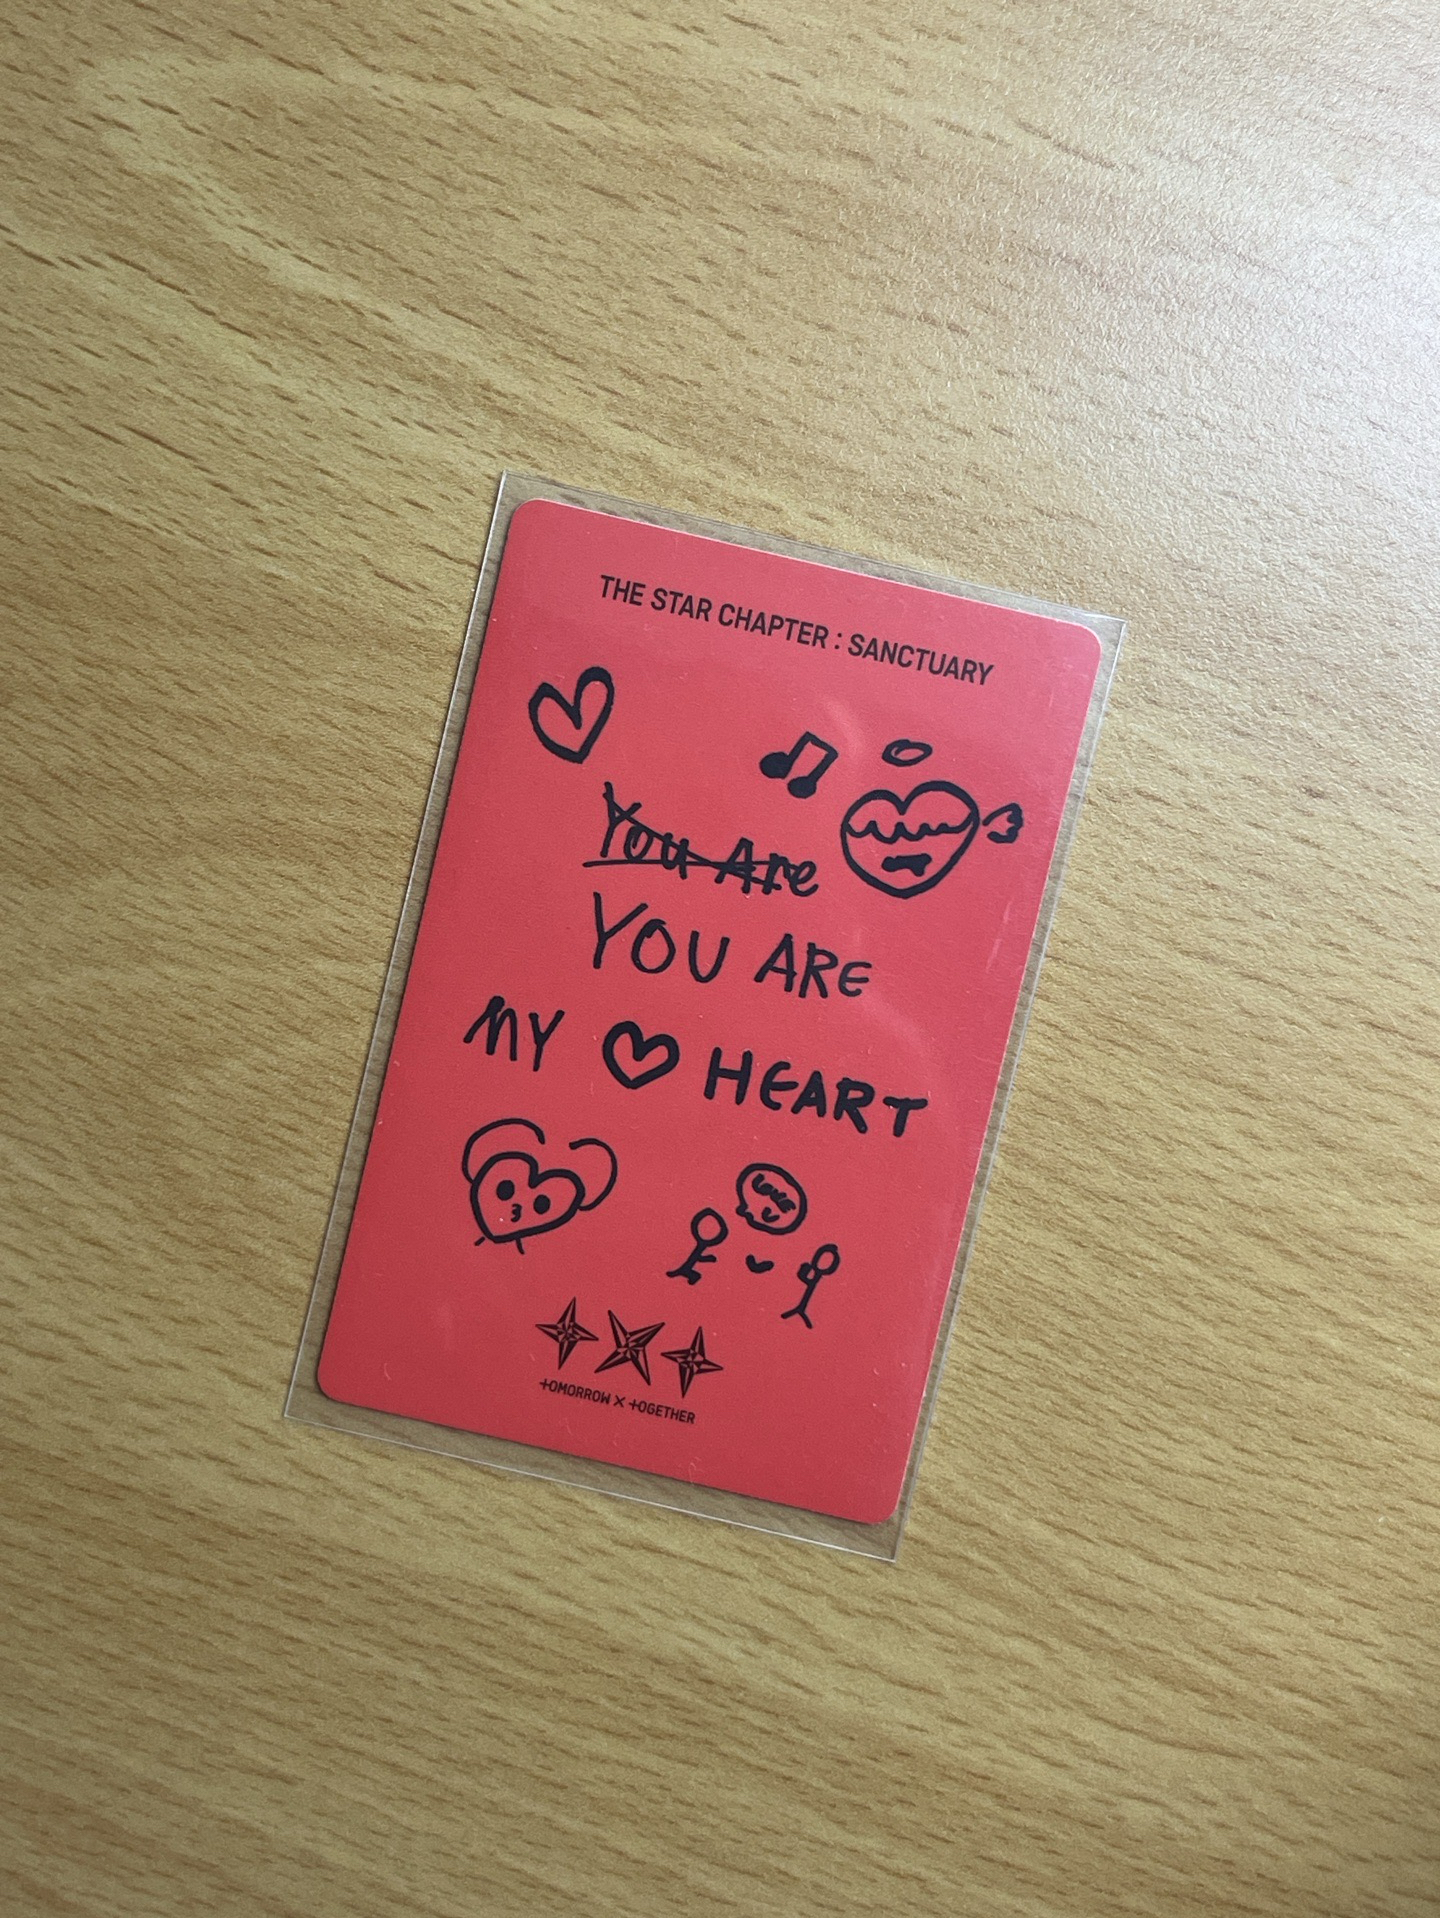 THE STAR CHAPTER : SANCTUARY
You Are
YOU ARE
MY HEART
LOVE
TOMORROW X TOGETHER